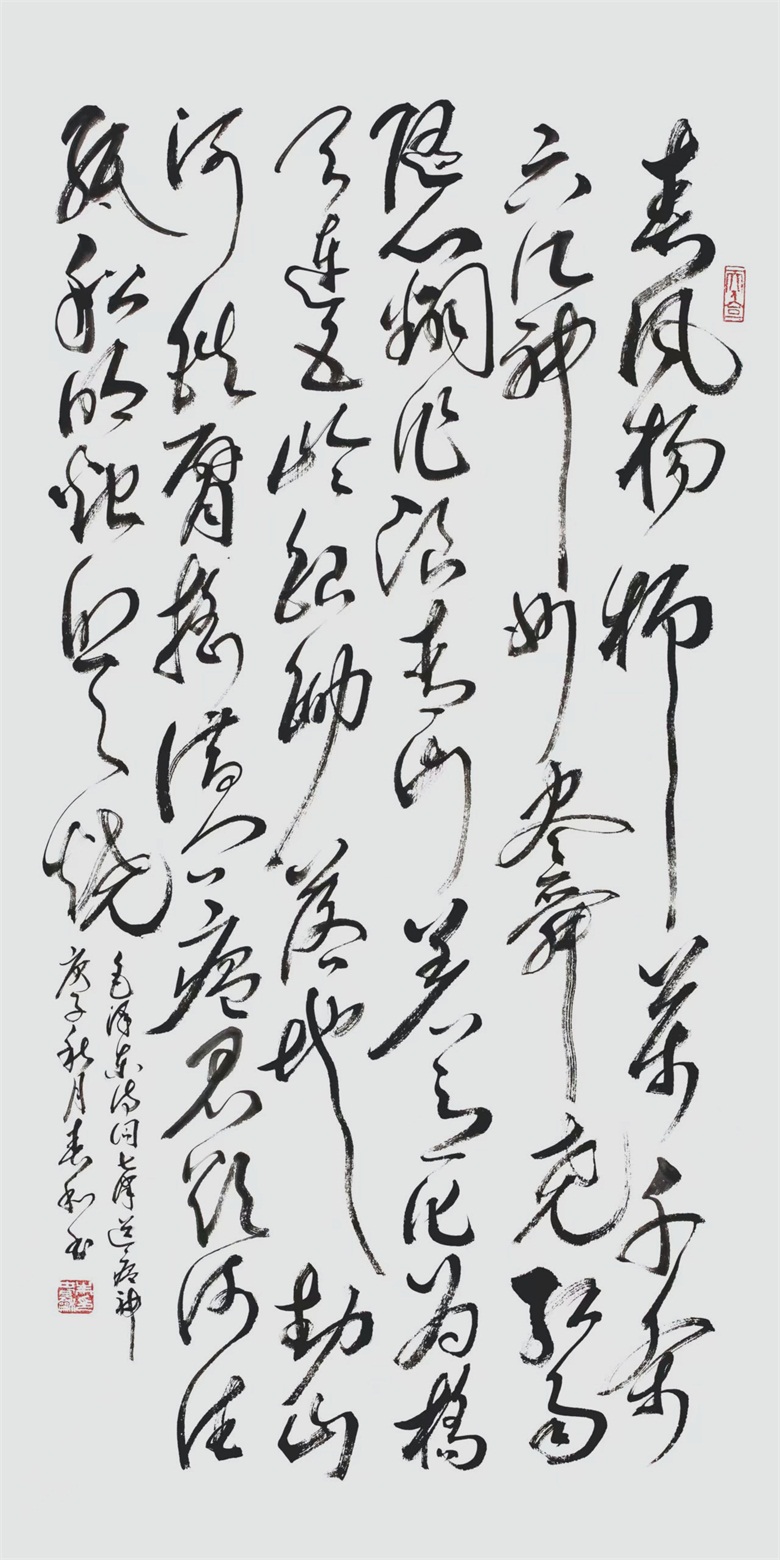 春风杨柳万千条
六亿神州尽舜尧红雨
随心翻作浪青山着意化为桥
天连五岭银锄落地动山
河铁臂摇借问瘟君欲何往
纸船明烛照天烧
毛泽东诗词七律送瘟神
庚子秋月春和书